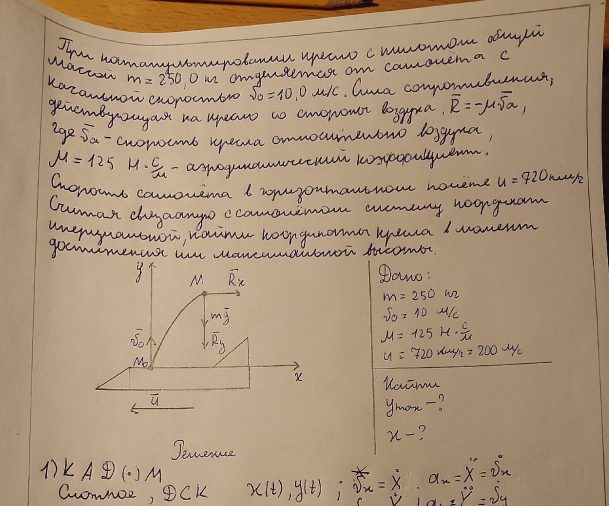 При катапультировании кресло с пилотом общей
массой m = 250,0 кг отделяется от самолёта с
начальной скоростью v̄₀ = 10,0 м/с. Сила сопротивления,
действующая на кресло со стороны воздуха, R̄ = -μv̄a,
где v̄a - скорость кресла относительно воздуха,
μ = 125 Н · с/м - аэродинамический коэффициент.
Скорость самолёта в горизонтальном полёте u = 720 км/ч
Считая связанную с самолётом систему координат
инерциальной, найти координаты кресла в момент
достижения им максимальной высоты.
y
M
R̄x
mḡ
R̄y
v̄₀
M₀
x
ū
Дано:
m = 250 кг
v₀ = 10 м/с
μ = 125 Н · с/м
u = 720 км/ч = 200 м/с
Найти
ymax - ?
x - ?
Решение
1) К А Д (·) М
Сложное, ДСК x(t), y(t) ; vx = ẋ ; ax = ẍ = v̇x